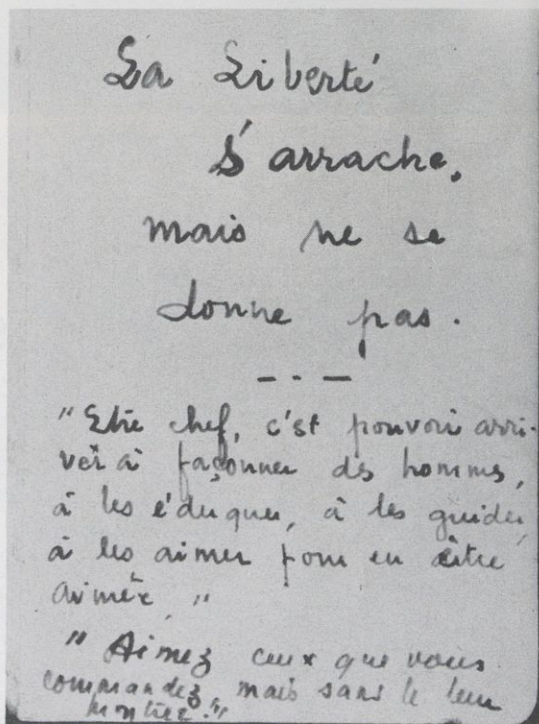 La Liberté
s'arrache,
mais ne se
donne pas.
— · —
"Etre chef, c'est pouvoir arri-
ver à façonner des hommes,
à les éduquer, à les guider,
à les aimer pour en être
aimé."
"Aimez ceux que vous
commandez, mais sans le leur
montrer."